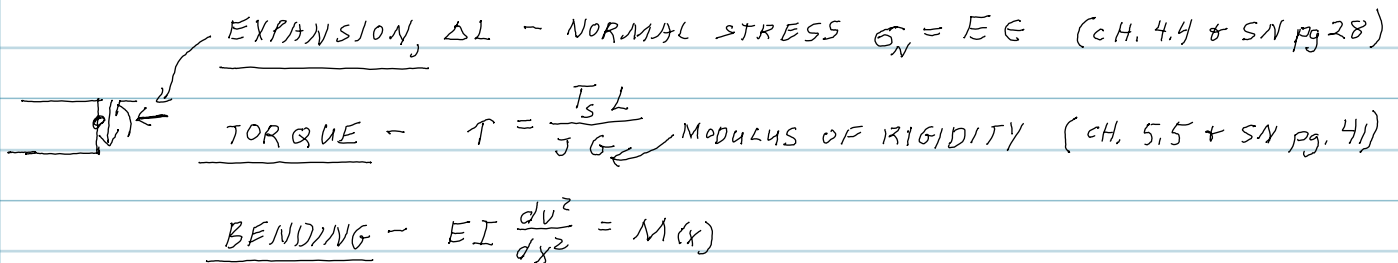 EXPANSION, ΔL - NORMAL STRESS σ_N = E ∈ (CH. 4.4 & SN pg 28)
TORQUE - τ = T_s L / J G MODULUS OF RIGIDITY (CH. 5.5 & SN pg. 41)
BENDING - EI dv²/dx² = M(x)